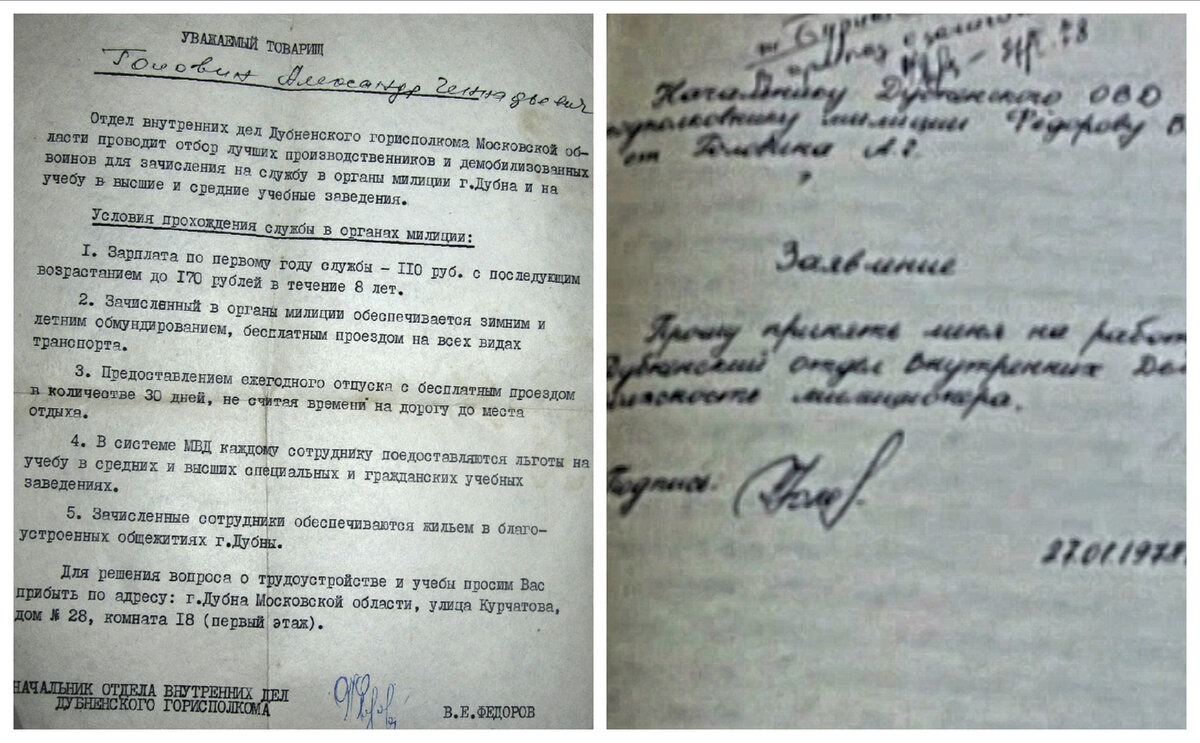 УВАЖАЕМЫЙ ТОВАРИЩ
Головин Александр Геннадьевич
Отдел внутренних дел Дубненского горисполкома Московской об-
ласти проводит отбор лучших производственников и демобилизованных
воинов для зачисления на службу в органы милиции г.Дубна и на
учебу в высшие и средние учебные заведения.
Условия прохождения службы в органах милиции:
1. Зарплата по первому году службы – 110 руб. с последующим
возрастанием до 170 рублей в течение 8 лет.
2. Зачисленный в органы милиции обеспечивается зимним и
летним обмундированием, бесплатным проездом на всех видах
транспорта.
3. Предоставлением ежегодного отпуска с бесплатным проездом
в количестве 30 дней, не считая времени на дорогу до места
отдыха.
4. В системе МВД каждому сотруднику поедоставляются льготы на
учебу в средних и высших специальных и гражданских учебных
заведениях.
5. Зачисленные сотрудники обеспечиваются жильем в благо-
устроенных общежитиях г.Дубны.
Для решения вопроса о трудоустройстве и учебы просим Вас
прибыть по адресу: г.Дубна Московской области, улица Курчатова,
дом № 28, комната 18 (первый этаж).
НАЧАЛЬНИК ОТДЕЛА ВНУТРЕННИХ ДЕЛ
ДУБНЕНСКОГО ГОРИСПОЛКОМА
В.Е.ФЕДОРОВ
Начальнику Дубненского ОВД
подполковнику милиции Фёдорову В
от Головина А.Г.
Заявление
Прошу принять меня на работ
Дубненский отдел Внутренних Дел
должность милиционера.
Подпись:
27.01.1978